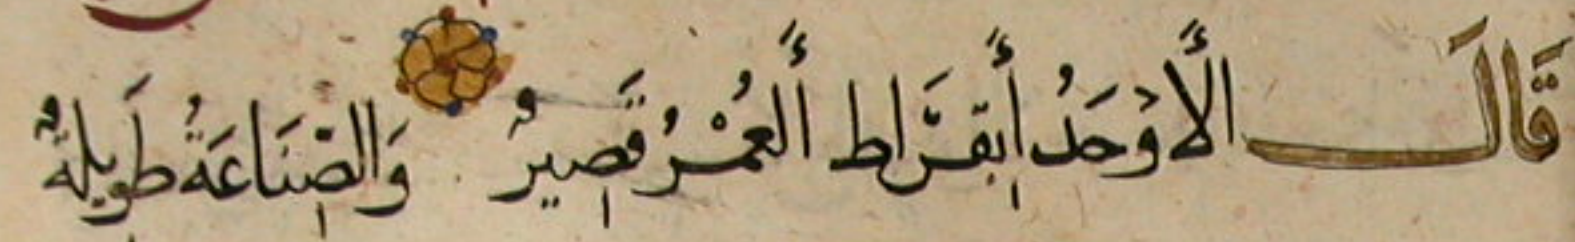 قَالَ الأَوْحَدُ أَبُقرَاط أَلعُمْرُ قَصِيرٌ وَالصِّنَاعَةُ طَوِيلةٌ